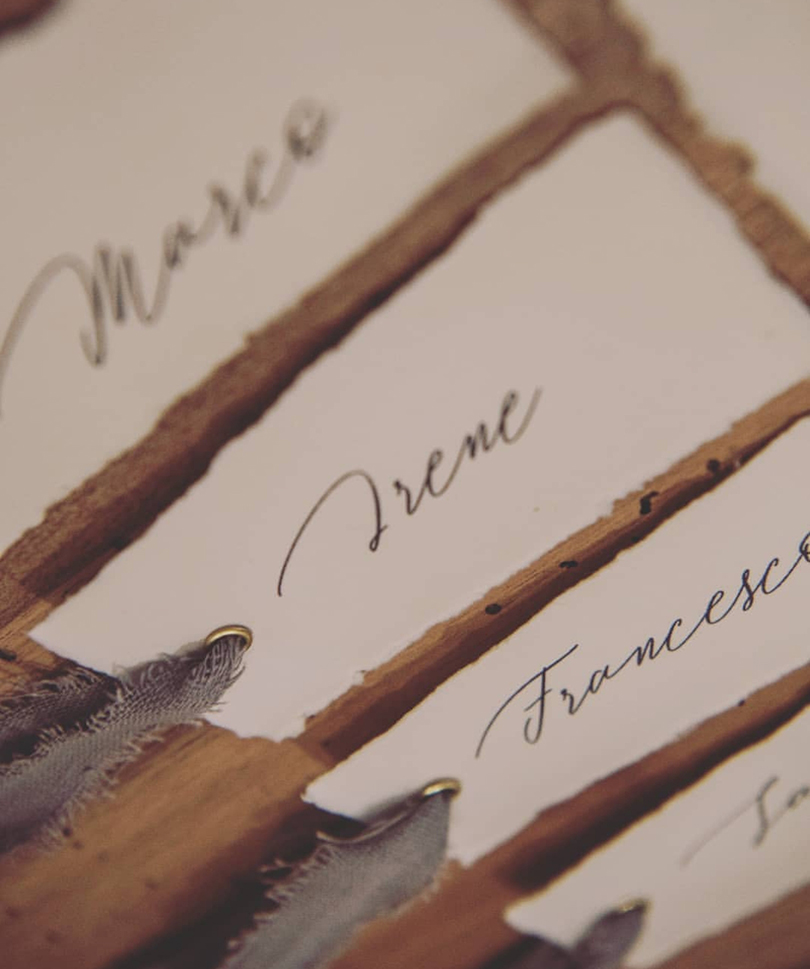 Marco
Irene
Francesco